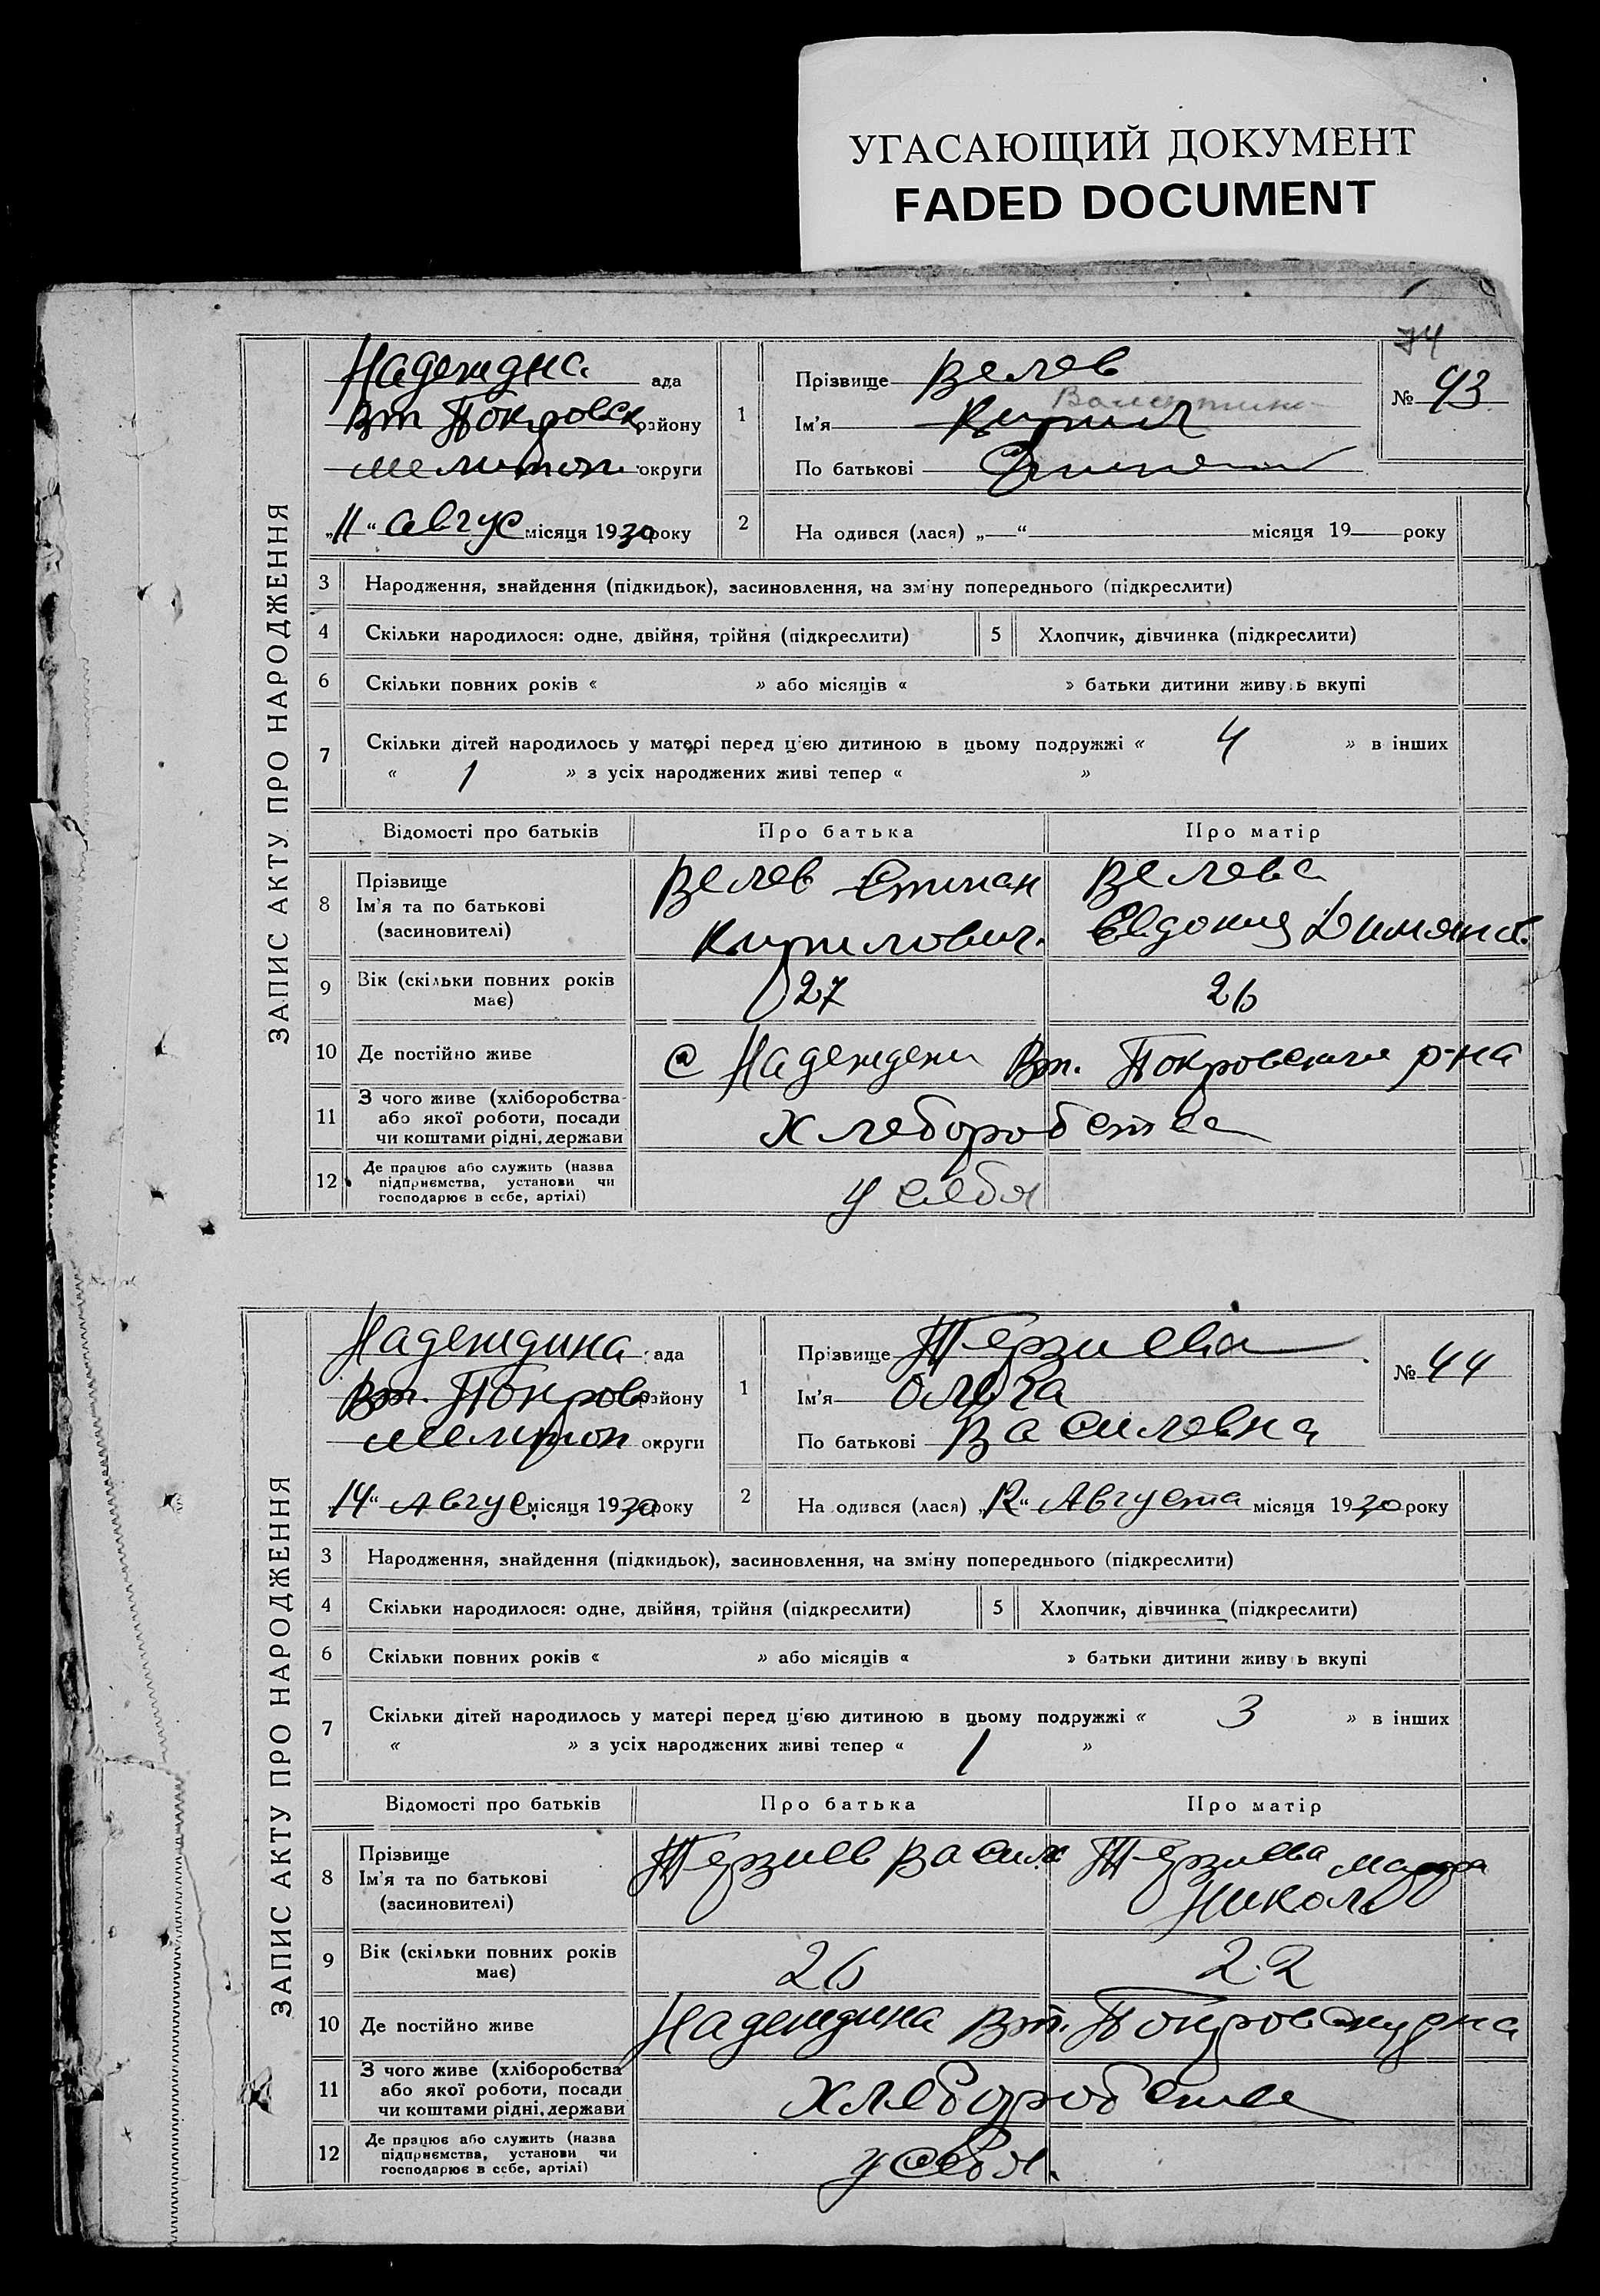 УГАСАЮЩИЙ ДОКУМЕНТ
FADED DOCUMENT
74
ЗАПИС АКТУ ПРО НАРОДЖЕННЯ
Надеждна ада
Вт Покровск району
мелитоп округи
„11“ авгус місяця 1930 року
1
Прізвище Велев
Валентина
Ім'я Кирил
По батькові
№ 43
2 На одився (лася) „ “ місяця 19 року
3 Народження, знайдення (підкидьок), засиновлення, на зміну попереднього (підкреслити)
4 Скільки народилося: одне, двійня, трійня (підкреслити) 5 Хлопчик, дівчинка (підкреслити)
6 Скільки повних років « » або місяців « » батьки дитини живу ь вкупі
7 Скільки дітей народилось у матері перед ц'єю дитиною в цьому подружжі « 4 » в інших
« 1 » з усіх народжених живі тепер « »
Відомості про батьків Про батька Про матір
8 Прізвище
Ім'я та по батькові
(засиновителі)
Велев Степан
Кирилович.
Велева
Евдокия
9 Вік (скільки повних років
має)
27 26
10 Де постійно живе с Надеждени Вт. Покровский р-на
11 З чого живе (хліборобства
або якої роботи, посади
чи коштами рідні, держави
хлеборобства
12 Де працює або служить (назва
підприємства, установи чи
господарює в себе, артілі)
у себя
ЗАПИС АКТУ ПРО НАРОДЖЕННЯ
Надеждина ада
Вт. Покров району
мелитоп округи
„14“ Август місяця 1930 року
1
Прізвище Терзиева
Ім'я Ольга
По батькові Василевна
№ 44
2 На одився (лася) „12“ Августа місяця 1930 року
3 Народження, знайдення (підкидьок), засиновлення, на зміну попереднього (підкреслити)
4 Скільки народилося: одне, двійня, трійня (підкреслити) 5 Хлопчик, дівчинка (підкреслити)
6 Скільки повних років « » або місяців « » батьки дитини живу ь вкупі
7 Скільки дітей народилось у матері перед ц'єю дитиною в цьому подружжі « 3 » в інших
« » з усіх народжених живі тепер « 1 »
Відомості про батьків Про батька Про матір
8 Прізвище
Ім'я та по батькові
(засиновителі)
Терзиев Васил
Терзиева Марфа
Никол
9 Вік (скільки повних років
має)
26 22
10 Де постійно живе Надеждина Вт. Покровску рна
11 З чого живе (хліборобства
або якої роботи, посади
чи коштами рідні, держави
хлеборобства
12 Де працює або служить (назва
підприємства, установи чи
господарює в себе, артілі)
у себя.